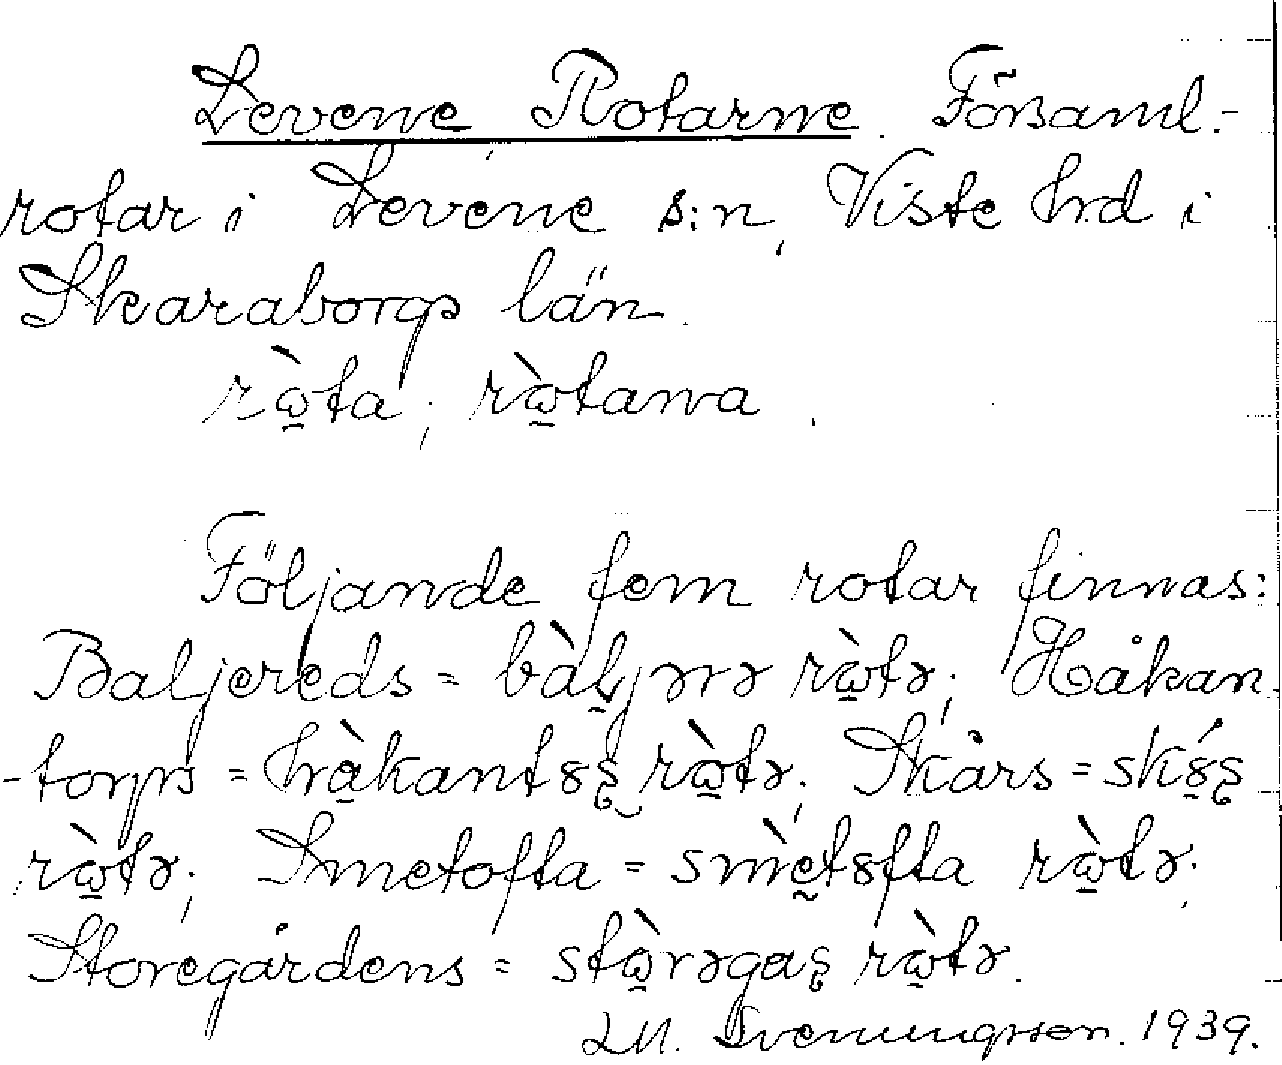 Levene Rotarne. Församl.-
rotar i Levene s:n, Viste hrd i
Skaraborgs län.
rὼ̲ta; rὼ̲tana.
Följande fem rotar finnas:
Baljereds = bàljənə rὼ̲tə; Håkan
-torps = hàkantȣʂ rὼ̲tə; Skårs = skȣ́ʂ
rὼ̲tə; Smetofta = smètȣfta rὼ̲tə;
Storegårdens = stὼ̲rəgaʂ rὼ̲tə.
Svenungsson. 1939.